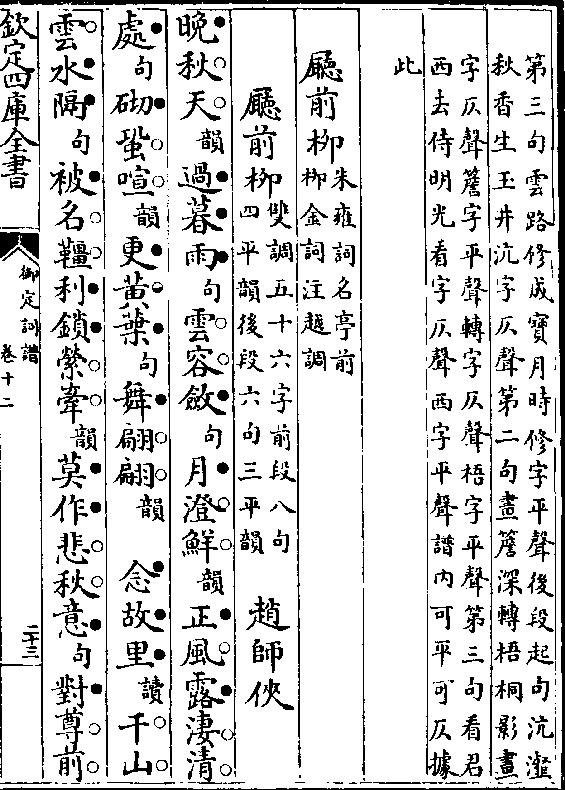 第三句雲路修成寳月時修字平聲後段起句沆瀣
秋香生玉井沆字仄聲第二句畫簷深轉梧桐影畫
字仄聲簷字平聲轉字仄聲梧字平聲第三句看君
西去侍明光看字仄聲西字平聲譜内可平可仄據
此
廳前栁朱雍詞名亭前
栁金詞注越調
廳前栁雙調五十六字前段八句
四平韻後段六句三平韻　趙師俠
晩秋天韻過暮雨句雲容斂句月澄鮮韻正風露淒清
處句砌蛩喧韻更黃葉句舞翩翩韻　念故里讀千山
雲水隔句被名韁利鎖縈牽韻莫作悲秋意句對尊前
欽定四庫全書
御定詞譜
卷十二
二十三